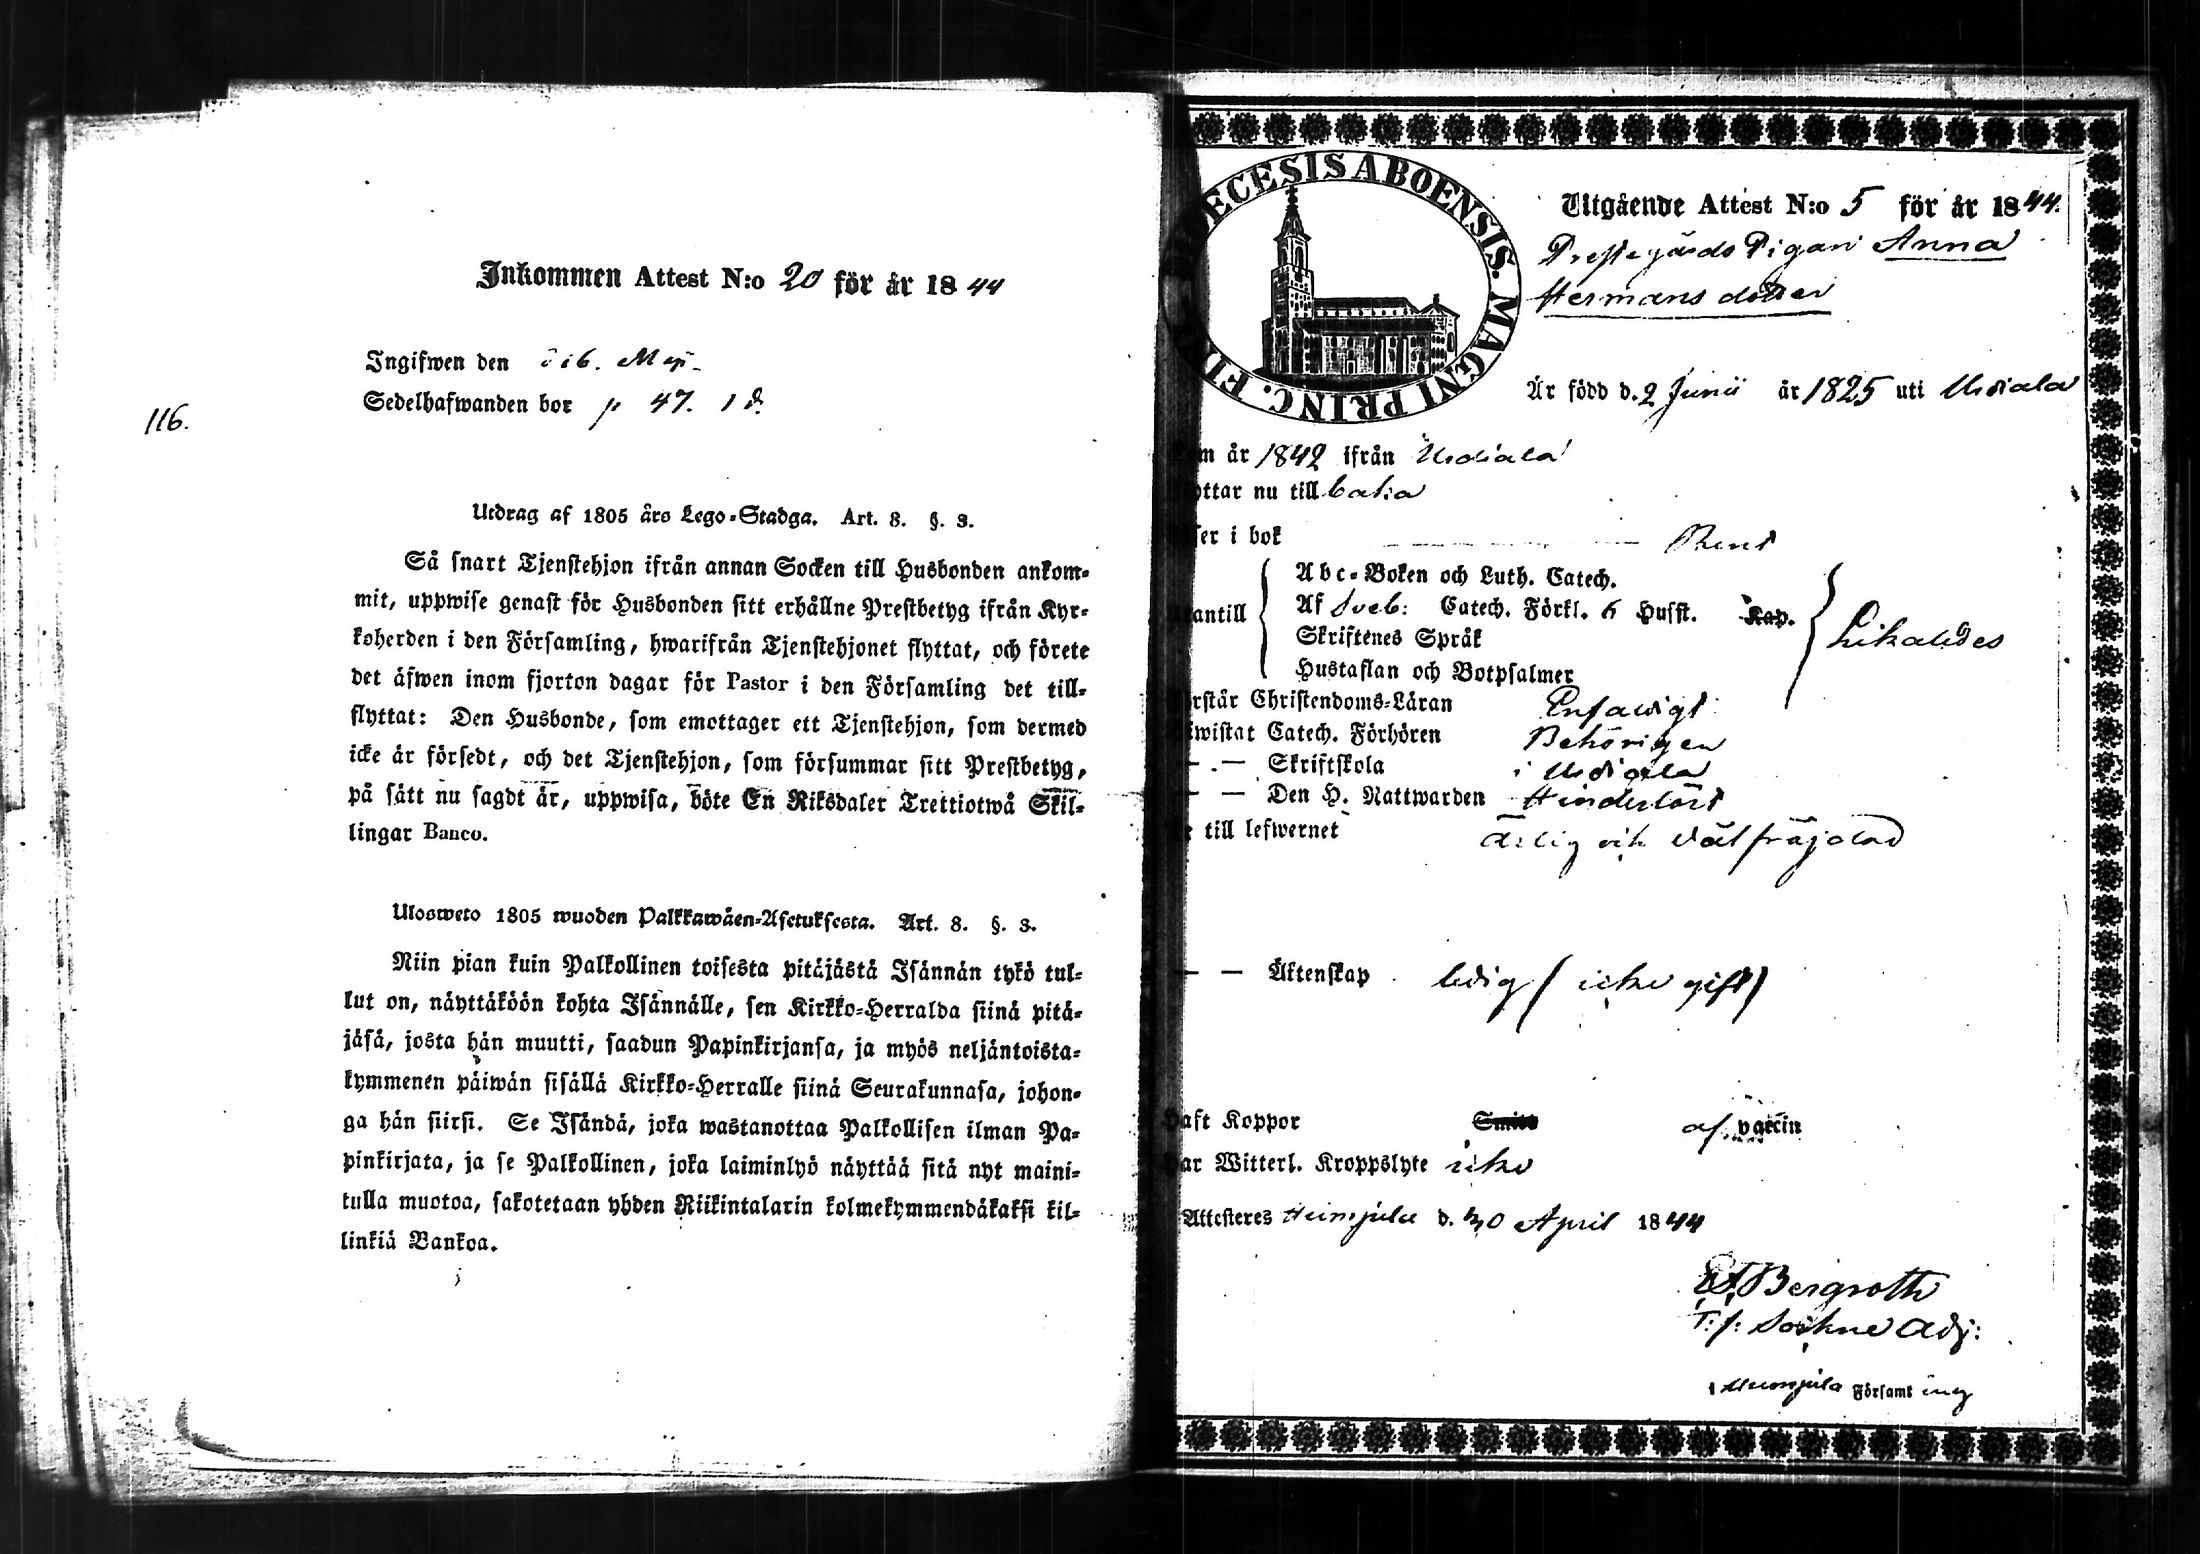 116.
Inkommen Attest N:o 20 för år 1844
Ingifwen den Maj.
Sedelhafwanden bor p 47. 1 d.
Utdrag af 1805 års Lego-Stadga. Art. 8. §. 3.
Så snart Tjenstehjon ifrån annan Socken till Husbonden ankom-
mit, uppwise genast för Husbonden sitt erhållne Prestbetyg ifrån Kyr-
koherden i den Församling, hwarifrån Tjenstehjonet flyttat, och förete
det äfwen inom fjorton dagar för Pastor i den Församling det till-
flyttat: Den Husbonde, som emottager ett Tjenstehjon, som dermed
icke är försedt, och det Tjenstehjon, som försummar sitt Prestbetyg,
på sätt nu sagdt är, uppwisa, böte En Riksdaler Trettiotwå Skil-
lingar Banco.
Ulosweto 1805 wuoden Palkkawäen-Asetuksesta. Art. 8. §. 3.
Niin pian kuin Palkollinen toisesta pitäjästä Isännän tykö tul-
lut on, näyttäköön kohta Isännälle, sen Kirkko-Herralda siinä pitä-
jäsä, josta hän muutti, saadun Papinkirjansa, ja myös neljäntoista-
kymmenen päiwän sisällä Kirkko-Herralle siinä Seurakunnasa, johon-
ga hän siirsi. Se Isändä, joka wastanottaa Palkollisen ilman Pa-
pinkirjata, ja se Palkollinen, joka laiminlyö näyttää sitä nyt maini-
tulla muotoa, sakotetaan yhden Riikintalarin kolmekymmendäkaksi kil-
linkiä Bankoa.
ECESIS ABOENSIS. MAGNI PRINC. FI
Utgående Attest N:o 5 för år 1844.
Prestegårds Pigan Anna
Hermansdotter
Är född d. 2 Junii år 1825 uti Urdiala
m år 1842 ifrån Urdiala
yttar nu till baka
ser i bok Rent
Abc-Boken och Luth. Catech.
antill Af Sveb: Catech. Förkl. 6 Husst. Kap. Likaledes
Skriftenes Språk
Hustaflan och Botpsalmer
rstår Christendoms-Läran Enfaldigt
wistat Catech. Förhören Behörigen
— . — Skriftskola i Urdiala
— — Den H. Nattwarden Hinderlöst
till lefwernet Ärlig och välfräjdad
— — Äktenskap ledig (icke gift)
aft Koppor Smitt af vaccin
ar Witterl. Kroppslyte icke
Attesteres Heinjoki d. 30 April 1844
Bergroth
T. f. Sockne Adj:
Församling